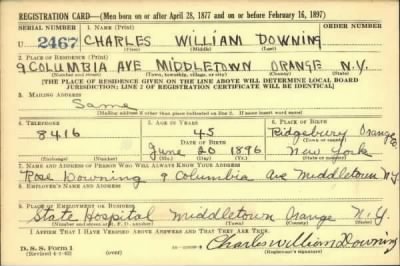 REGISTRATION CARD—(Men born on or after April 28, 1877 and on or before February 16, 1897)
SERIAL NUMBER
1. NAME (Print)
U 2467
CHARLES WILLIAM DOWNING
(First) (Middle) (Last)
2. PLACE OF RESIDENCE (Print)
9 COLUMBIA AVE MIDDLETOWN ORANGE N.Y.
(Number and street) (Town, township, village, or city) (County) (State)
[THE PLACE OF RESIDENCE GIVEN ON THE LINE ABOVE WILL DETERMINE LOCAL BOARD
JURISDICTION; LINE 2 OF REGISTRATION CERTIFICATE WILL BE IDENTICAL]
3. MAILING ADDRESS
Same
[Mailing address if other than place indicated on line 2. If same insert word same]
4. TELEPHONE
5. AGE IN YEARS
6. PLACE OF BIRTH
8416
45
Ridgebury Orange
DATE OF BIRTH
(Town or county)
June 20 1896
New York
(Exchange) (Number)
(Mo.) (Day) (Yr.)
(State or country)
7. NAME AND ADDRESS OF PERSON WHO WILL ALWAYS KNOW YOUR ADDRESS
Rose Downing 9 Columbia Ave Middletown N.Y.
8. EMPLOYER'S NAME AND ADDRESS
9. PLACE OF EMPLOYMENT OR BUSINESS
State Hospital Middletown Orange N.Y.
(Number and street or R. F. D. number) (Town) (County) (State)
I AFFIRM THAT I HAVE VERIFIED ABOVE ANSWERS AND THAT THEY ARE TRUE.
D. S. S. Form 1
(Revised 4-1-42) (over)
Charles William Downing
(Registrant's signature)